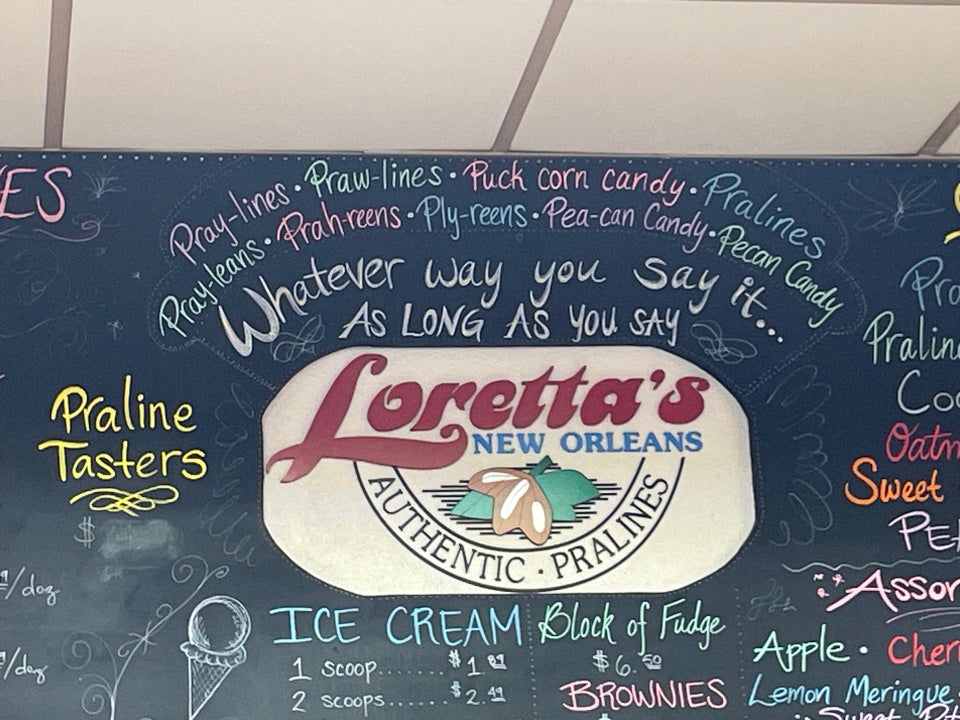 ES
Pray-lines · Praw-lines · Puck corn candy · Pralines
Pray-leans · Prah-reens · Ply-reens · Pea-can Candy · Pecan Candy
Whatever way you say it...
AS LONG AS YOU SAY
Loretta's
NEW ORLEANS
AUTHENTIC · PRALINES
Praline
Tasters
$
/doz
/doz
ICE CREAM
1 scoop........$1.89
2 scoops......$2.49
Block of Fudge
$6.50
BROWNIES
Pra
Praline
Coo
Oatm
Sweet
PE
Assor
Apple · Cher
Lemon Meringue
Sweet